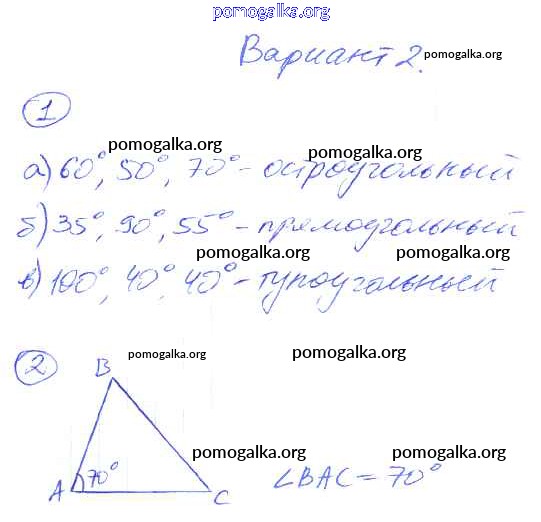 pomogalka.org
Вариант 2. pomogalka.org
1
pomogalka.org pomogalka.org
а) 60°, 50°, 70° - остроугольный
б) 35°, 90°, 55° - прямоугольный
pomogalka.org pomogalka.org
в) 100°, 40°, 40° - тупоугольный
2
B pomogalka.org pomogalka.org
pomogalka.org pomogalka.org
A 70° C ∠BAC = 70°